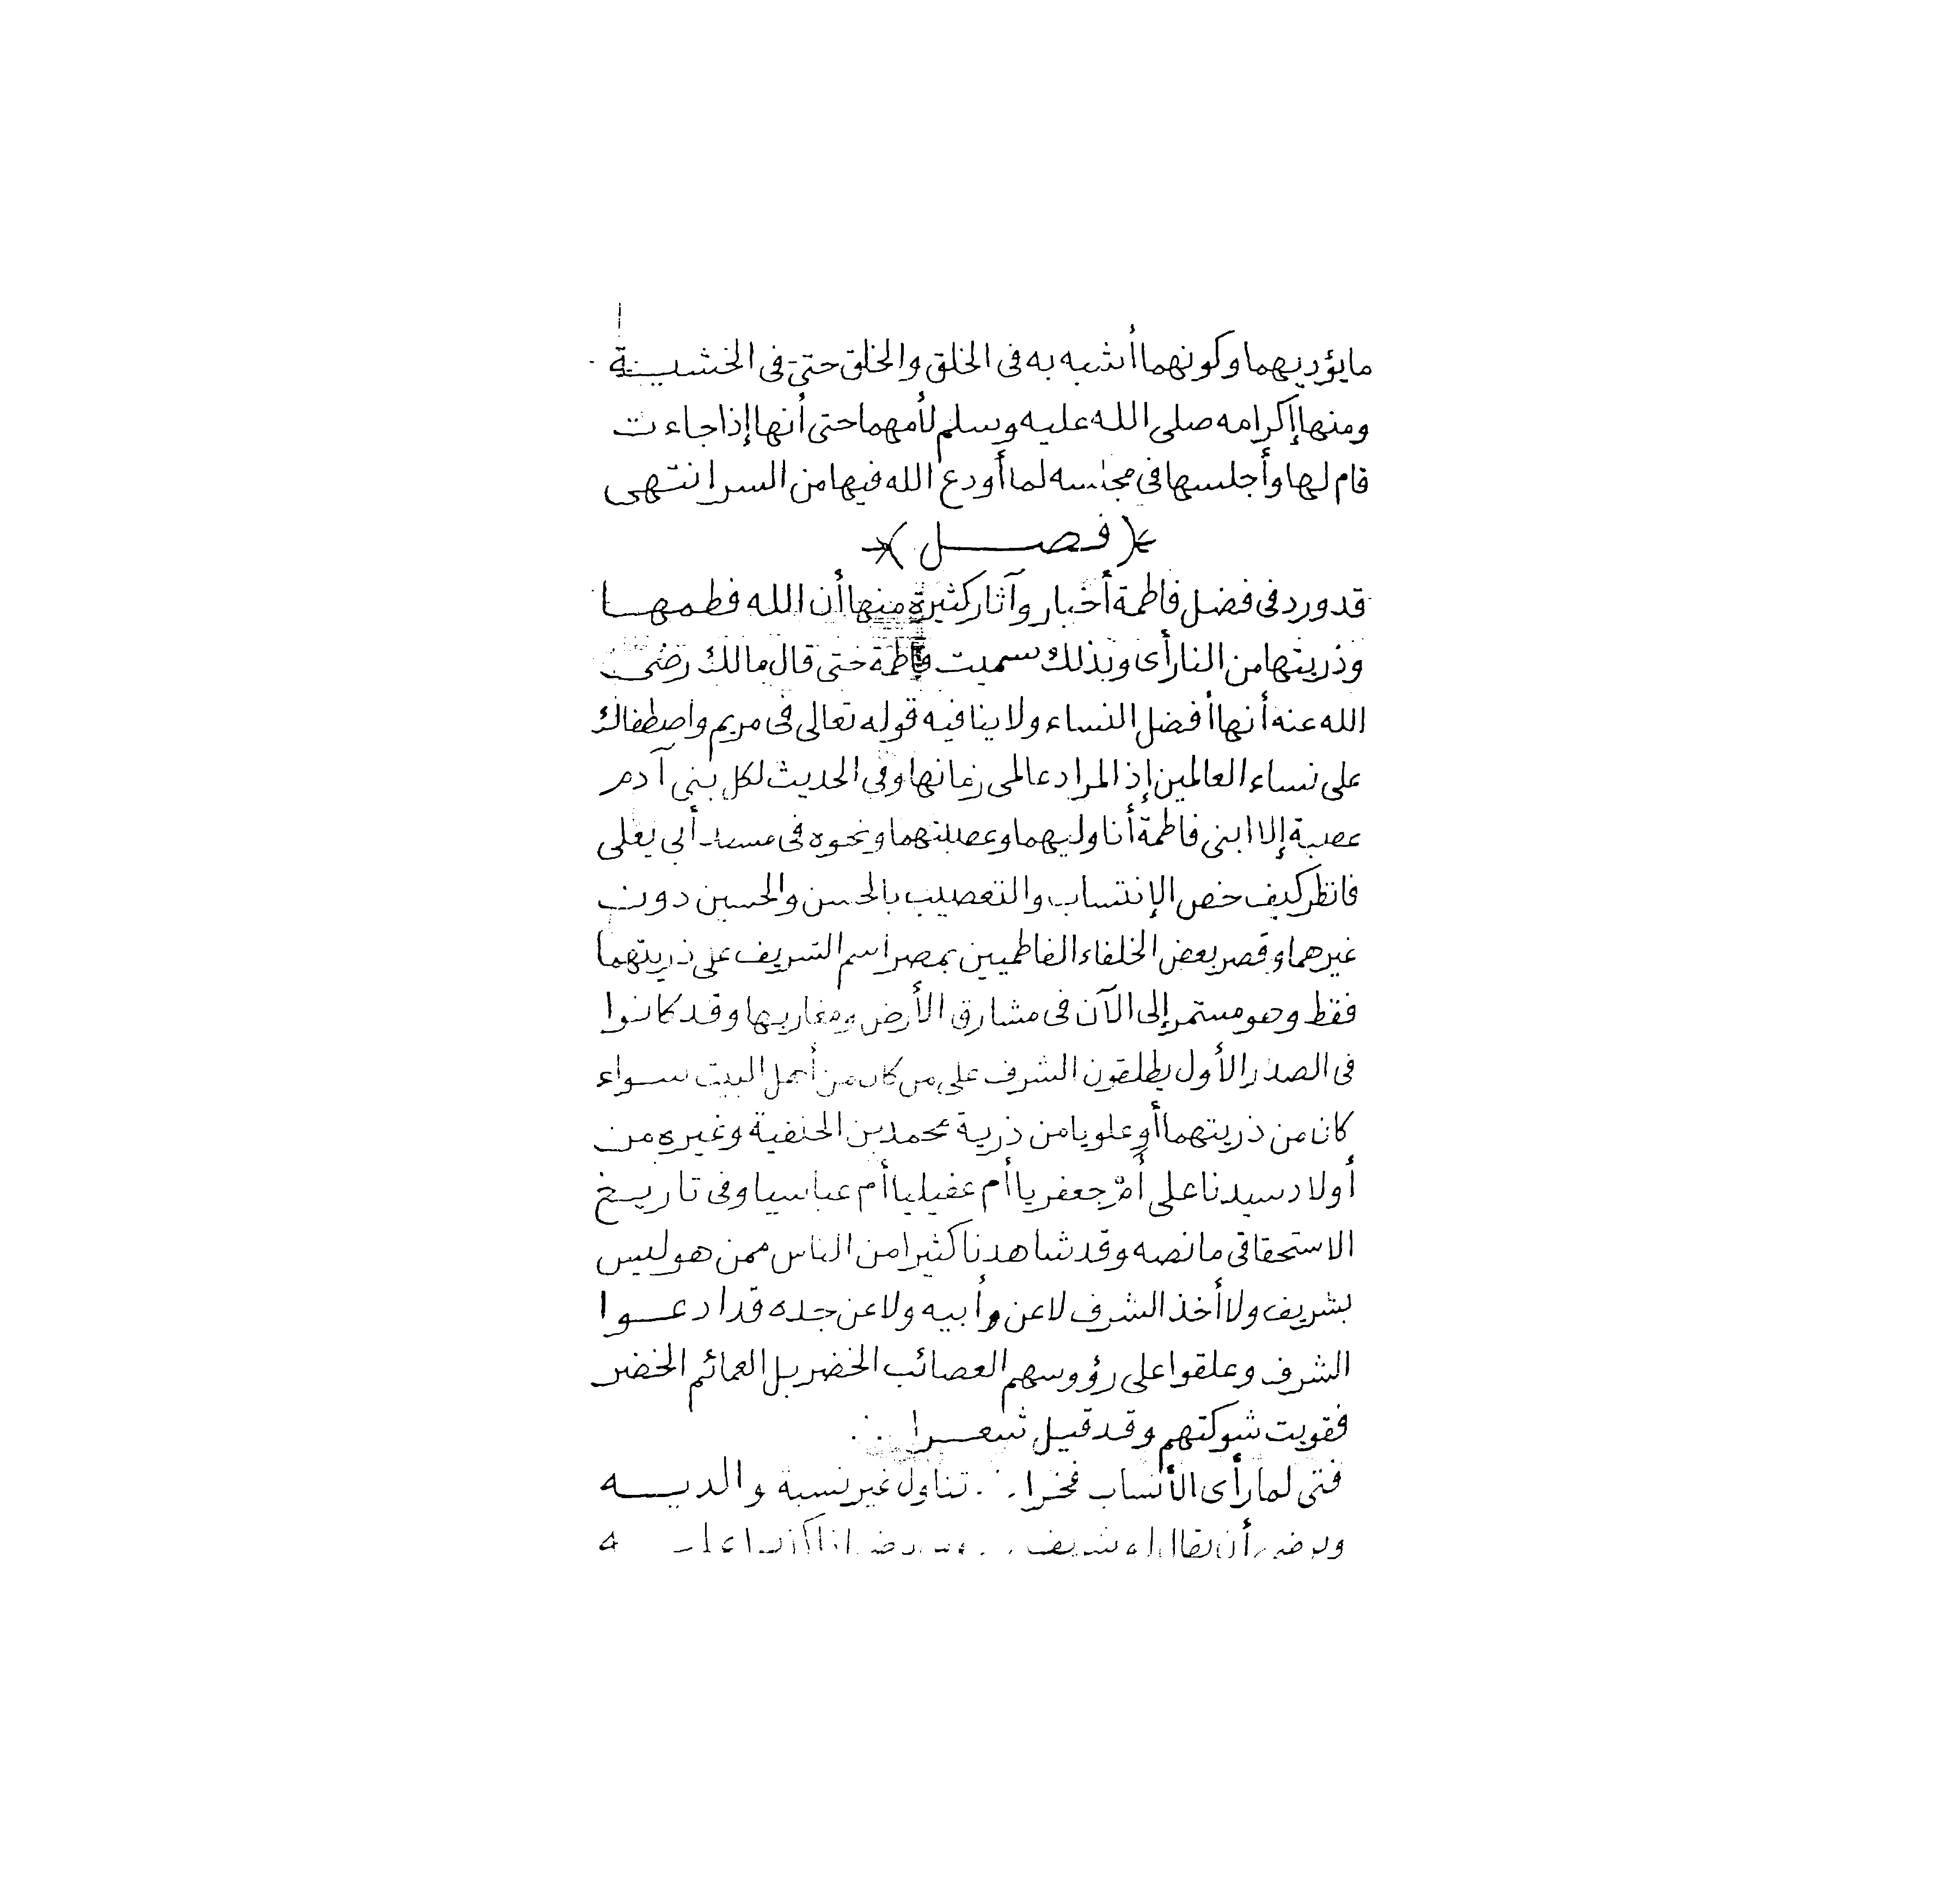 مايؤديهما وكونهما أشبه به فى الخلق والخلق حتى فى الخشية
ومنها إكرامه صلى الله عليه وسلم لأمهما حتى أنها إذا جاءت
قام لها وأجلسها فى مجلسه لما أودع الله فيها من السر انتهى
(فصل)
قد ورد فى فضل فاطمة أخبار وآثار كثيرة منها أن الله فطمها
وذريتها من النار أى وبذلك سميت فاطمة حتى قال مالك رضى
الله عنه أنها أفضل النساء ولا ينافيه قوله تعالى فى مريم واصطفاك
على نساء العالمين إذ المراد عالمى زمانها وفى الحديث لكل بنى آدم
عصبة إلا ابنى فاطمة أنا وليهما وعصبتهما ونحوه فى مسند أبى يعلى
فانظر كيف خص الإنتساب والتعصيب بالحسن والحسين دون
غيرهما وقصر بعض الخلفاء الفاطميين بمصر اسم الشريف على ذريتهما
فقط وهو مستمر إلى الآن فى مشارق الأرض ومغاربها وقد كانوا
فى الصدر الأول يطلقون الشرف على من كان من أهل البيت سواء
كان من ذريتهما أو علويا من ذرية محمد بن الحنفية وغيره من
أولاد سيدنا على أم جعفريا أم عقيليا أم عباسيا وفى تاريخ
الاستحقاقى ما نصه وقد شاهدنا كثيرا من الناس ممن هو ليس
بشريف ولا أخذ الشرف لا عن أبيه ولا عن جده قد ادعوا
الشرف وعلقوا على رؤوسهم العصائب الخضر بل العمائم الخضر
فقويت شوكتهم وقد قيل شعرا ∴
فتى لما رأى الأنساب فخرا ∴ تناول غير نسبة والديه
ويرضى أن يقال له شريف